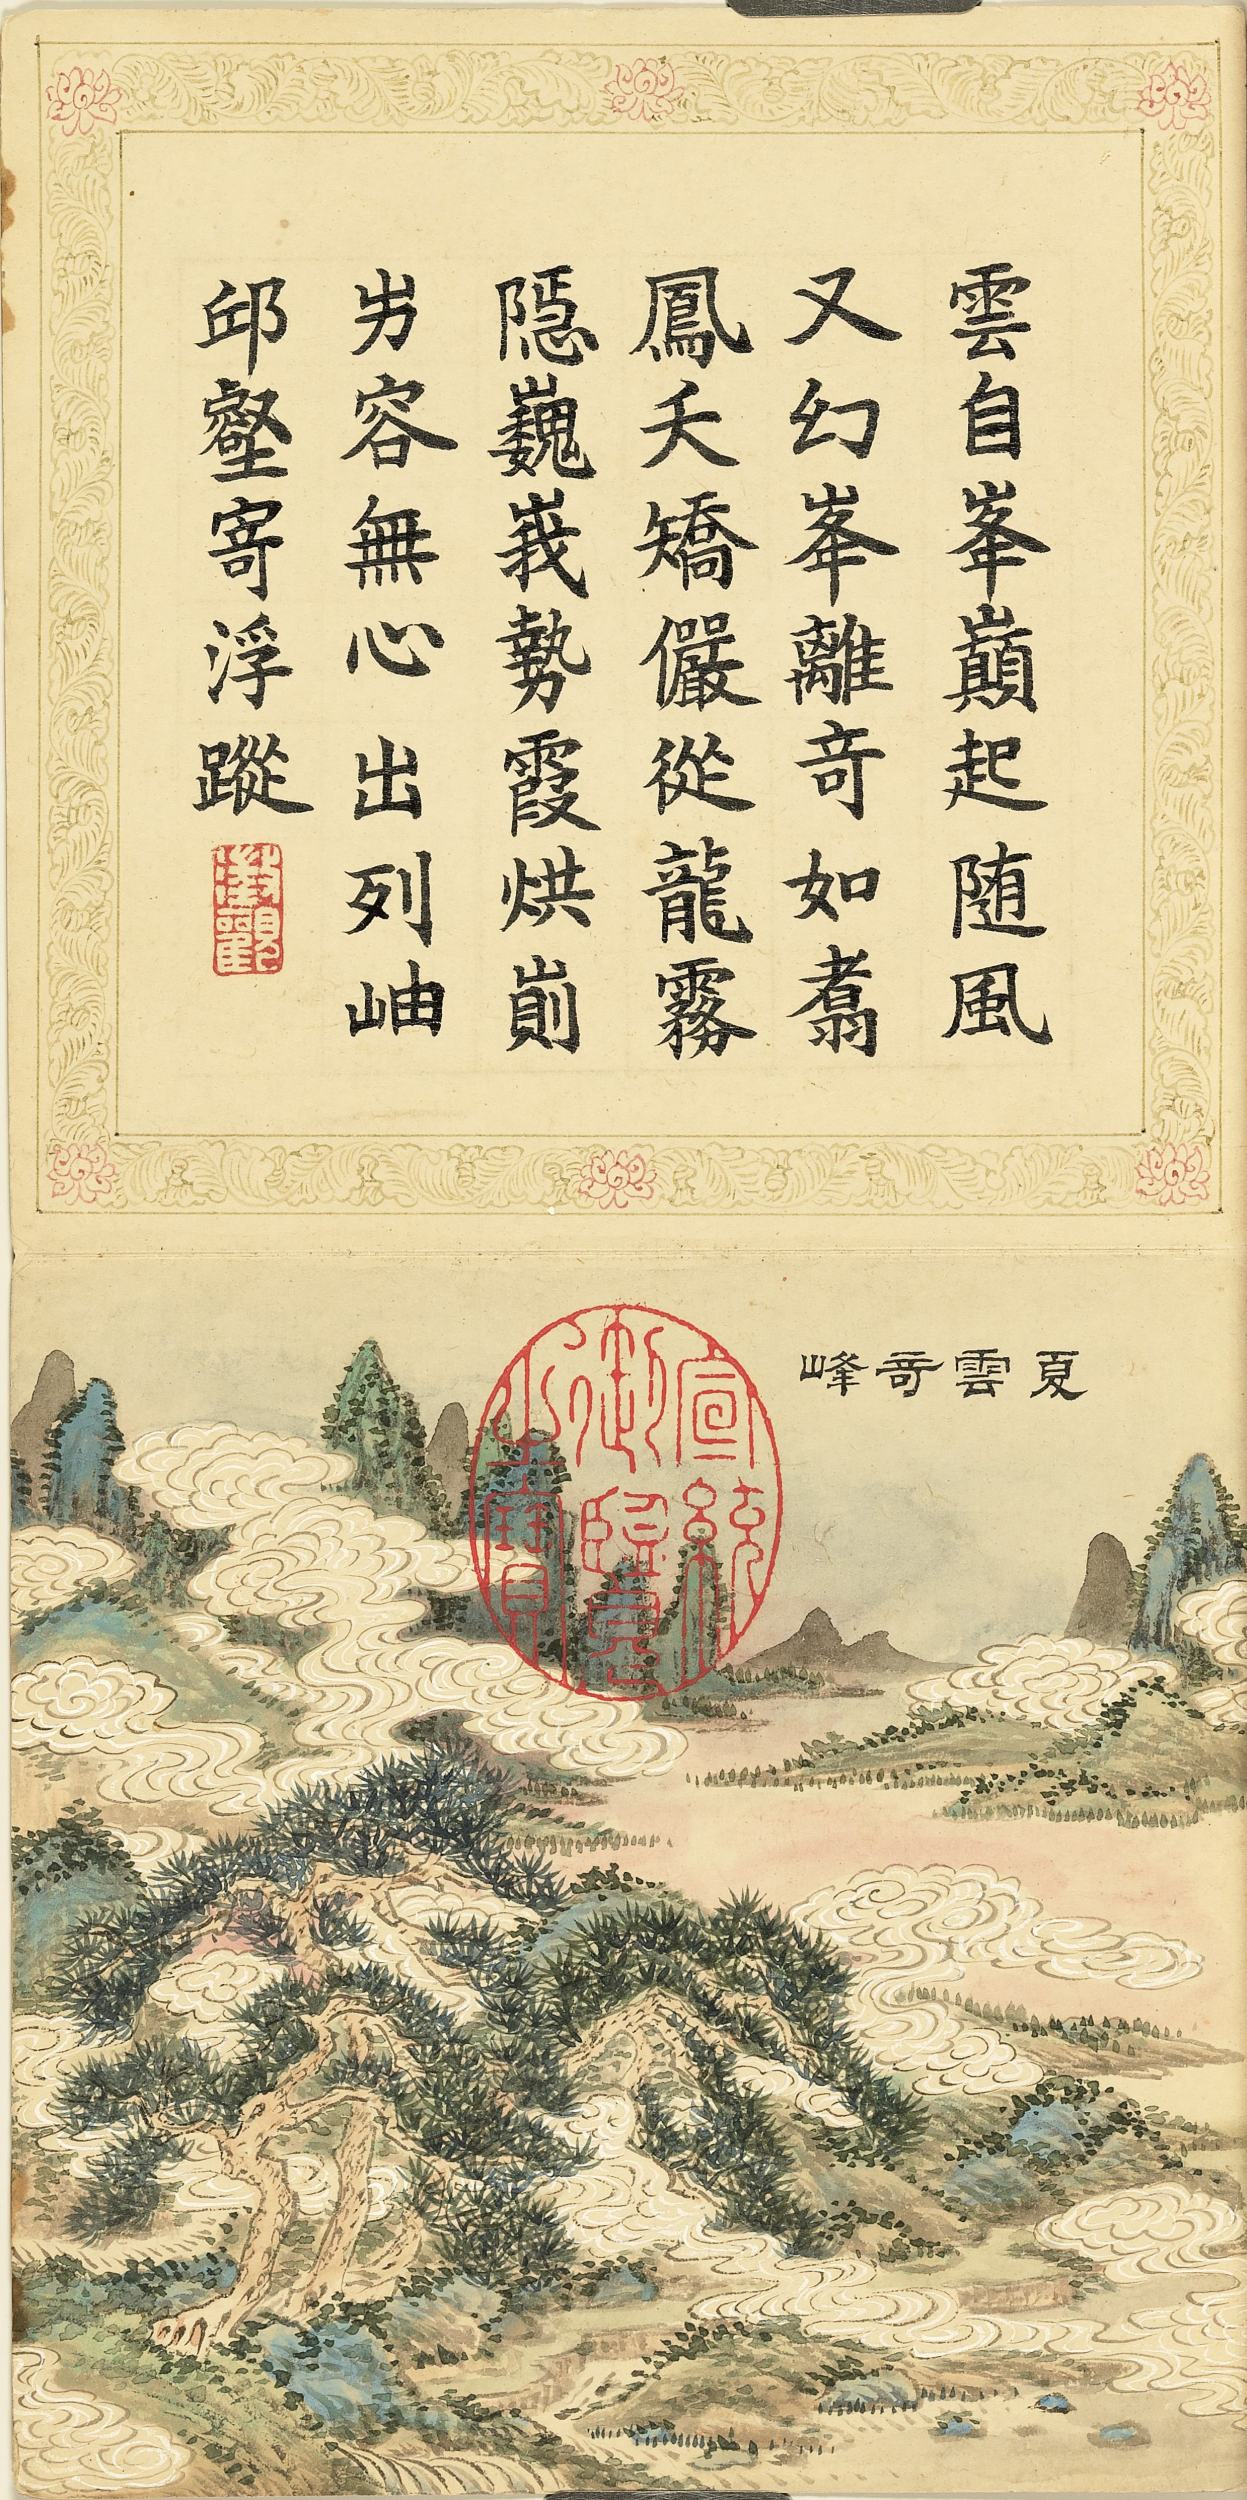 雲自峯巔起随風
又幻峯離竒如翥
鳳夭矯儼從龍霧
隠巍峩勢霞烘崱
屴容無心出列岫
邱壑寄浮蹤
夏雲竒峰
宣統
御覽
之寶